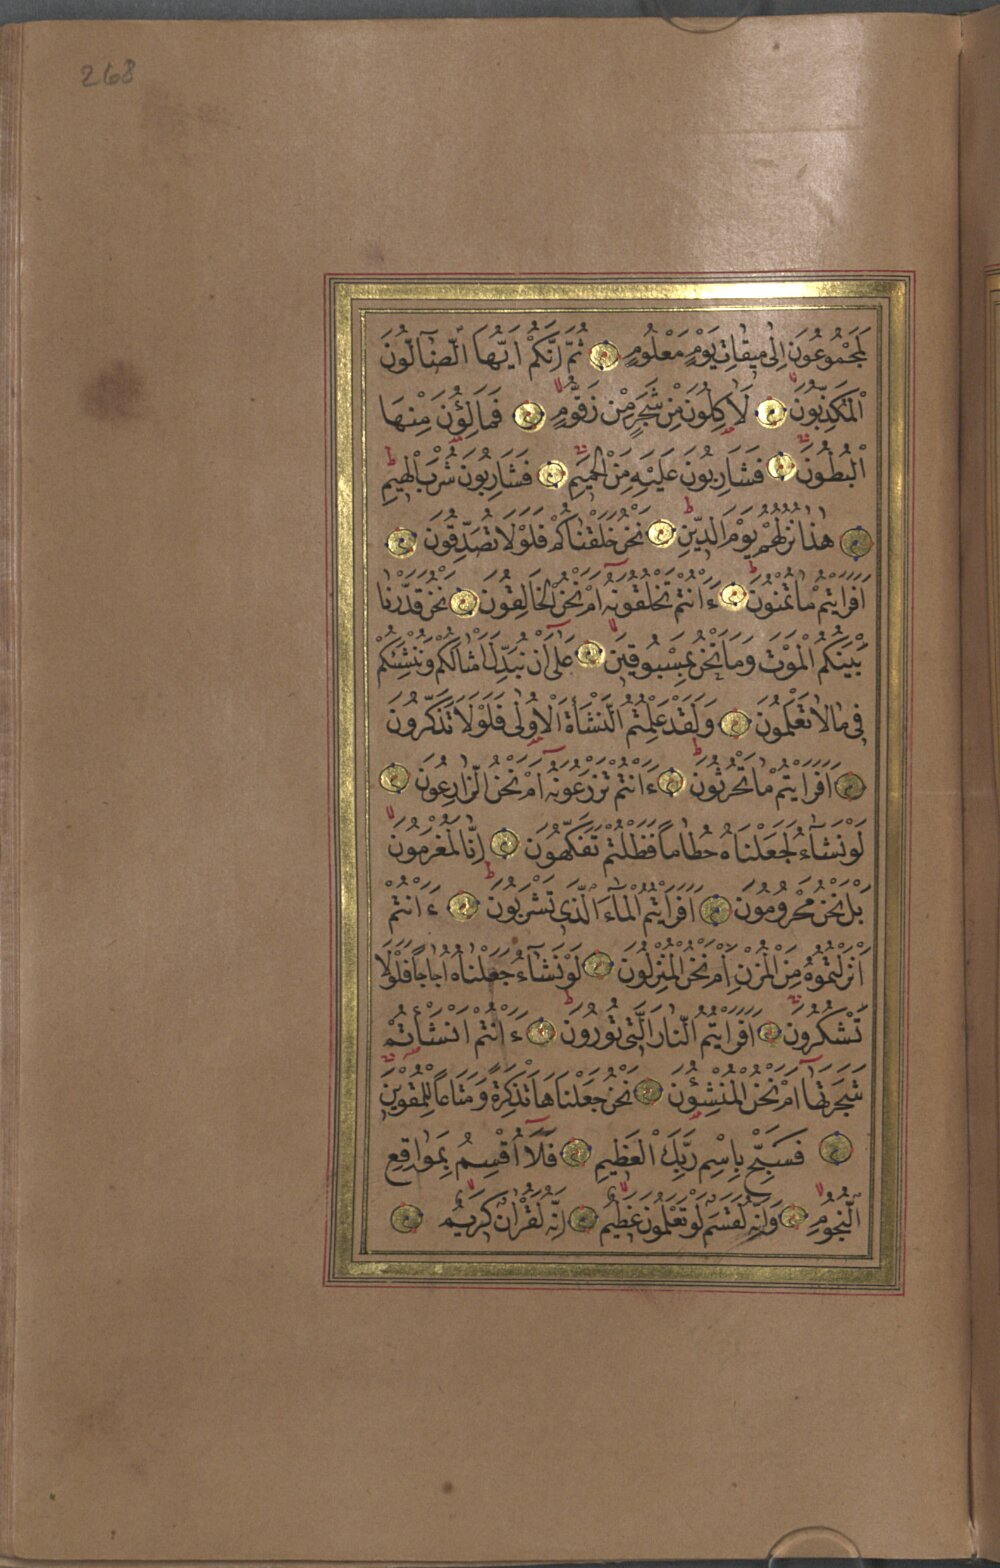 268
لَمَجْمُوعُونَ اِلٰى مِيقَاتِ يَوْمٍ مَعْلُومٍ ثُمَّ اِنَّكُمْ اَيُّهَا الضَّٓالُّونَ
الْمُكَذِّبُونَ لَاٰكِلُونَ مِنْ شَجَرٍ مِنْ زَقُّومٍ فَمَالِؤُنَ مِنْهَا
الْبُطُونَ فَشَارِبُونَ عَلَيْهِ مِنَ الْحَمِيمِ فَشَارِبُونَ شُرْبَ الْهِيمِ
هٰذَا نُزُلُهُمْ يَوْمَ الدِّينِ نَحْنُ خَلَقْنَاكُمْ فَلَوْلَا تُصَدِّقُونَ
اَفَرَاَيْتُمْ مَا تُمْنُونَ ءَاَنْتُمْ تَخْلُقُونَهُٓ اَمْ نَحْنُ الْخَالِقُونَ نَحْنُ قَدَّرْنَا
بَيْنَكُمُ الْمَوْتَ وَمَا نَحْنُ بِمَسْبُوقِينَ عَلٰٓى اَنْ نُبَدِّلَ اَمْثَالَكُمْ وَنُنْشِئَكُمْ
فِى مَا لَا تَعْلَمُونَ وَلَقَدْ عَلِمْتُمُ النَّشْاَةَ الْاُولٰى فَلَوْلَا تَذَكَّرُونَ
اَفَرَاَيْتُمْ مَا تَحْرُثُونَ ءَاَنْتُمْ تَزْرَعُونَهُٓ اَمْ نَحْنُ الزَّارِعُونَ
لَوْ نَشَٓاءُ لَجَعَلْنَاهُ حُطَامًا فَظَلْتُمْ تَفَكَّهُونَ اِنَّا لَمُغْرَمُونَ
بَلْ نَحْنُ مَحْرُومُونَ اَفَرَاَيْتُمُ الْمَٓاءَ الَّذِى تَشْرَبُونَ ءَاَنْتُمْ
اَنْزَلْتُمُوهُ مِنَ الْمُزْنِ اَمْ نَحْنُ الْمُنْزِلُونَ لَوْ نَشَٓاءُ جَعَلْنَاهُ اُجَاجًا فَلَوْلَا
تَشْكُرُونَ اَفَرَاَيْتُمُ النَّارَ الَّتِى تُورُونَ ءَاَنْتُمْ اَنْشَاْتُمْ
شَجَرَتَهَٓا اَمْ نَحْنُ الْمُنْشِؤُنَ نَحْنُ جَعَلْنَاهَا تَذْكِرَةً وَمَتَاعًا لِلْمُقْوِينَ
فَسَبِّحْ بِاسْمِ رَبِّكَ الْعَظِيمِ فَلَٓا اُقْسِمُ بِمَوَاقِعِ
النُّجُومِ وَاِنَّهُ لَقَسَمٌ لَوْ تَعْلَمُونَ عَظِيمٌ اِنَّهُ لَقُرْاٰنٌ كَرِيمٌ